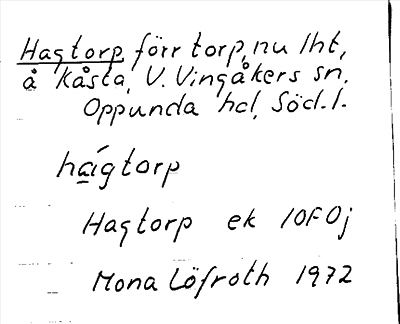 Hagtorp förr torp, nu lht,
å Kåsta, V. Vingåkers sn,
Oppunda hd, Söd.l.
hagtorp
Hagtorp ek 10F0j
Mona Löfroth 1972